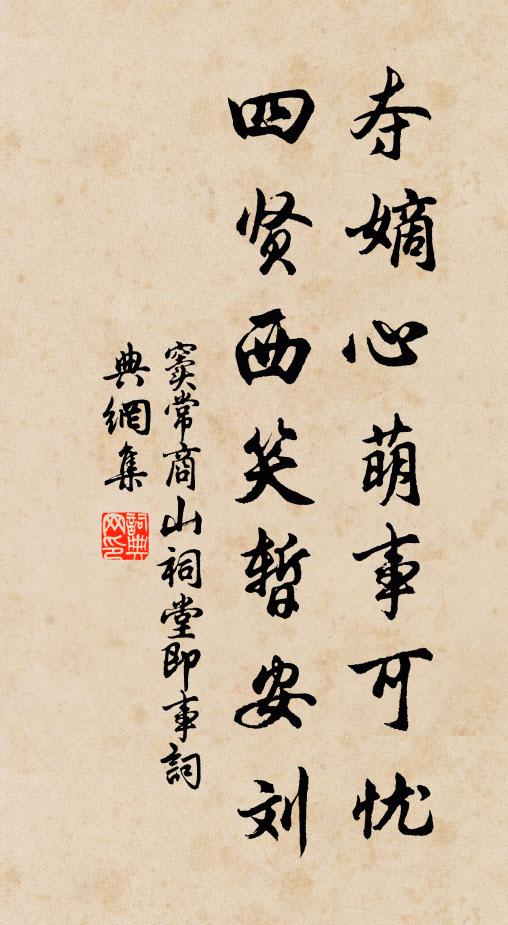 夺嫡心萌事可忧
四贤西笑暫安刘
窦常商山祠堂即事詞
典網集
詞典
网印